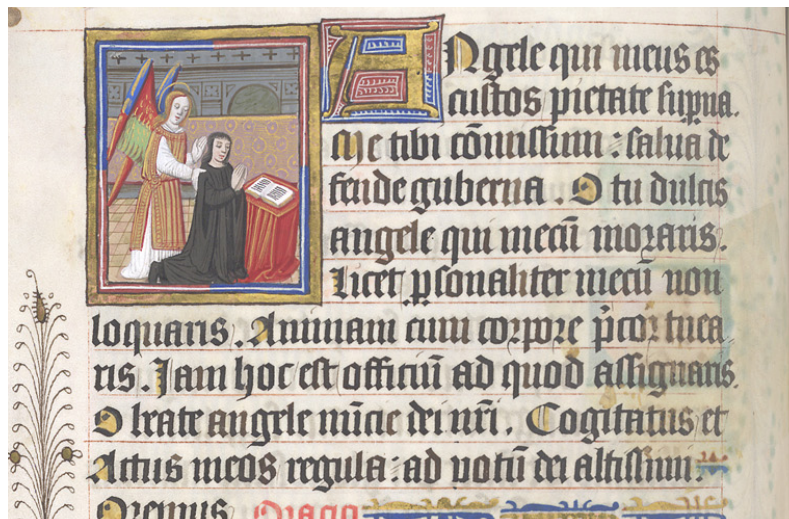 Angele qui meus es
custos pietate sup̃na.
Me tibi cõmissum : salua de
fende guberna . O tu dulcis
angele qui mecũ moraris .
Licet p̱sonaliter mecũ non
loquaris . Animam cum corpore p̃cor tuea
ris . Nam hoc est officiũ ad quod assignaris .
O beate angele nũcie dei nr̃i . Cogitatus et
Actus meos regula : ad votũ dei altissimi .
Oremus Oracio